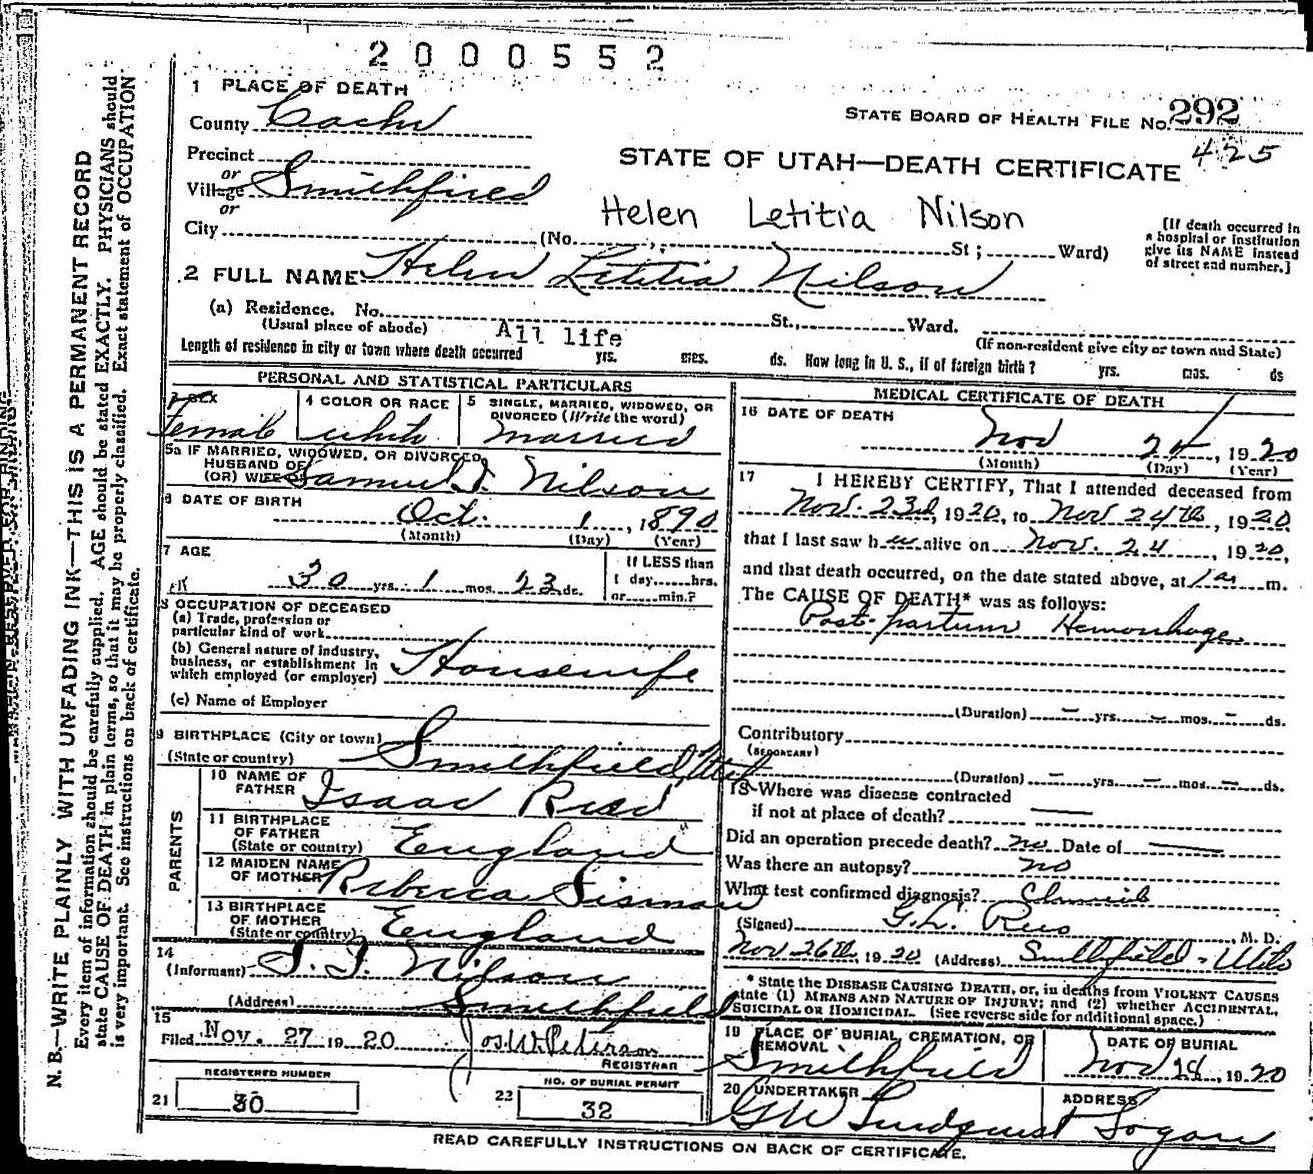 2000552
1 PLACE OF DEATH
County Cache
STATE BOARD OF HEALTH FILE No. 292
425
Precinct
or
Village Smithfield
or
City (No. St; Ward)
STATE OF UTAH—DEATH CERTIFICATE
Helen Letitia Nilson
[If death occurred in a hospital or institution give its NAME instead of street end number.]
2 FULL NAME Helen Letitia Nilson
(a) Residence. No. St., Ward.
(Usual place of abode) (If non-resident give city or town and State)
All life
Length of residence in city or town where death occurred yrs. mos. ds. How long in U. S., if of foreign birth? yrs. mos. ds
PERSONAL AND STATISTICAL PARTICULARS
3 SEX Female
4 COLOR OR RACE white
5 SINGLE, MARRIED, WIDOWED, OR DIVORCED (Write the word) married
5a IF MARRIED, WIDOWED, OR DIVORCED
HUSBAND OF
(OR) WIFE OF Samuel J. Nilson
6 DATE OF BIRTH
Oct. 1, 1890
(Month) (Day) (Year)
7 AGE
30 yrs. 1 mos. 23 ds.
If LESS than
1 day......hrs.
or......min.?
8 OCCUPATION OF DECEASED
(a) Trade, profession or
particular kind of work
(b) General nature of industry,
business, or establishment in
which employed (or employer) Housewife
(c) Name of Employer
9 BIRTHPLACE (City or town)
(State or country) Smithfield, Utah
PARENTS
10 NAME OF
FATHER Isaac Reed
11 BIRTHPLACE
OF FATHER
(State or country) England
12 MAIDEN NAME
OF MOTHER Rebecca Sisman
13 BIRTHPLACE
OF MOTHER
(State or country) England
14
(Informant) S. J. Nilson
(Address) Smithfield
15
Filed Nov. 27 1920 Jos. W. Peterson
REGISTRAR
REGISTERED NUMBER
21 30
NO. OF BURIAL PERMIT
23 32
MEDICAL CERTIFICATE OF DEATH
16 DATE OF DEATH
Nov 24, 1920
(Month) (Day) (Year)
17 I HEREBY CERTIFY, That I attended deceased from
Nov. 23d, 1920, to Nov 24th, 1920
that I last saw her alive on Nov. 24, 1920,
and that death occurred, on the date stated above, at 1 a m.
The CAUSE OF DEATH* was as follows:
Post-partum Hemorrhage
(Duration) — yrs. — mos. — ds.
Contributory
(SECONDARY)
(Duration) — yrs. — mos. — ds.
18 Where was disease contracted
if not at place of death? —
Did an operation precede death? no Date of —
Was there an autopsy? no
What test confirmed diagnosis?
(Signed) G. L. Rees, M. D.
Nov 26th, 1920 (Address) Smithfield - Utah
* State the DISEASE CAUSING DEATH, or, in deaths from VIOLENT CAUSES
state (1) MEANS AND NATURE OF INJURY; and (2) whether ACCIDENTAL,
SUICIDAL OR HOMICIDAL. (See reverse side for additional space.)
19 PLACE OF BURIAL, CREMATION, OR
REMOVAL Smithfield
DATE OF BURIAL
Nov 28, 1920
20 UNDERTAKER
GW Lundquist
ADDRESS
Logan
READ CAREFULLY INSTRUCTIONS ON BACK OF CERTIFICATE.
N. B.—WRITE PLAINLY WITH UNFADING INK—THIS IS A PERMANENT RECORD
Every item of information should be carefully supplied. AGE should be stated EXACTLY. PHYSICIANS should
state CAUSE OF DEATH in plain terms, so that it may be properly classified. Exact statement of OCCUPATION
is very important. See instructions on back of certificate.